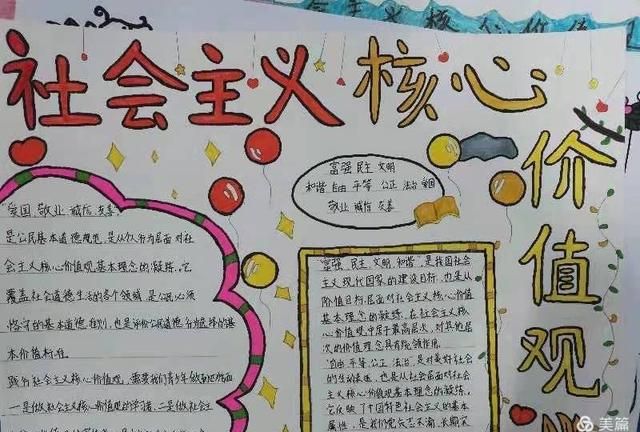 社会主义核心
价值观
富强 民主 文明
和谐 自由 平等 公正 法治 爱国
敬业 诚信 友善
"爱国 敬业 诚信 友善"
是公民基本道德规范,是从个人行为层面对社
会主义核心价值观基本理念的凝练。它
覆盖社会道德生活的各个领域,是公民必须
恪守的基本道德准则,也是评价公民道德行为选择的基
本价值标准。
践行社会主义核心价值观,需要我们青少年做到
一是做社会主义核心价值观的学习者,二是做社会主
"富强 民主 文明 和谐"是我国社会
主义现代国家的建设目标,也是从
价值目标层面对社会主义核心价值观
基本理念的凝练,在社会主义核
心价值观中居于最高层次,对其他层
次的价值理念具有统领作用。
"自由 平等 公正 法治"是对美好社会
的生动表述,也是从社会层面对社会主
义核心价值观基本理念的凝练,
它反映了中国特色社会主义的基本
属性,是我们党矢志不渝,长期实
美篇